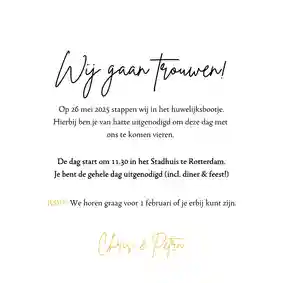 Wij gaan trouwen!
Op 26 mei 2025 stappen wij in het huwelijksbootje.
Hierbij ben je van harte uitgenodigd om deze dag met
ons te komen vieren.
De dag start om 11.30 in het Stadhuis te Rotterdam.
Je bent de gehele dag uitgenodigd (incl. diner & feest!)
RSVP: We horen graag voor 1 februari of je erbij kunt zijn.
Chris & Petra